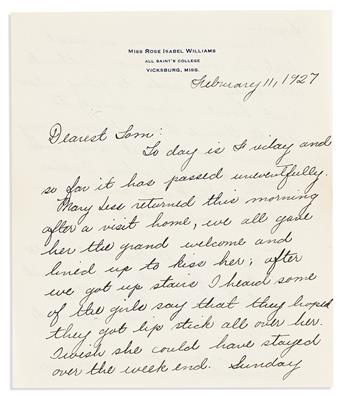 Miss Rose Isabel Williams
All Saint's College
Vicksburg, Miss.
February 11, 1927
Dearest Tom:
To day is Friday and
so far it has passed uneventfully.
Mary Less returned this morning
after a visit home, we all gave
her the grand welcome and
lined up to kiss her; after
we got up stairs I heard some
of the girls say that they hoped
they got lip stick all over her.
I wish she could have stayed
over the week end. Sunday